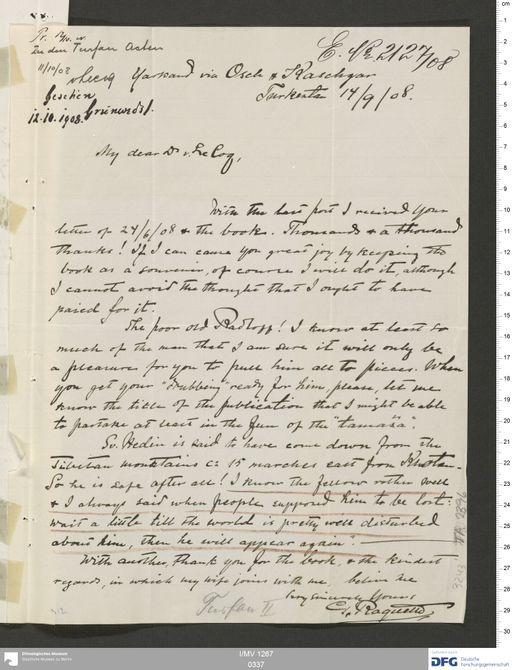 E. No 2127/08
Zu den Turfan Acten
11/10/08 v Lecoq
Gesehen
12.10.1908. Grünwedel.
Yarkand via Osch & Kaschgar
Turkestan 14/9/08.
My dear Dr v. Le Coq,
With the last post I received your
letter of 24/6/08 & the books. Thousands & a thousand
thanks! If I can cause you great joy by keeping the
book as a souvenir, of course I will do it, although
I cannot avoid the thought that I ought to have
paied for it.
The poor old Radloff! I know at least so
much of the man that I am sure it will only be
a pleasure for you to pull him all to pieces. When
you get your "drubbing" ready for him, please, let me
know the title of the publication that I might be able
to partake at least in the fun of the "tamasa".
Sv. Hedin is said to have come down from the
Tibetan mountains ca 15 marches east from Khotan.
So he is safe after all! I know the fellow rather well
& I always said when people supposed him to be lost:
"wait a little till the world is pretty well disturbed
about him, then he will appear again."
With another thank you for the book, & the kindest
regards, in which my wife joins with me, believe me
very sincerely Yours
G. Raquette
Turfan II
Ethnologisches Museum
Staatliche Museen zu Berlin
I/MV 1267
0337
DFG Deutsche
Forschungsgemeinschaft